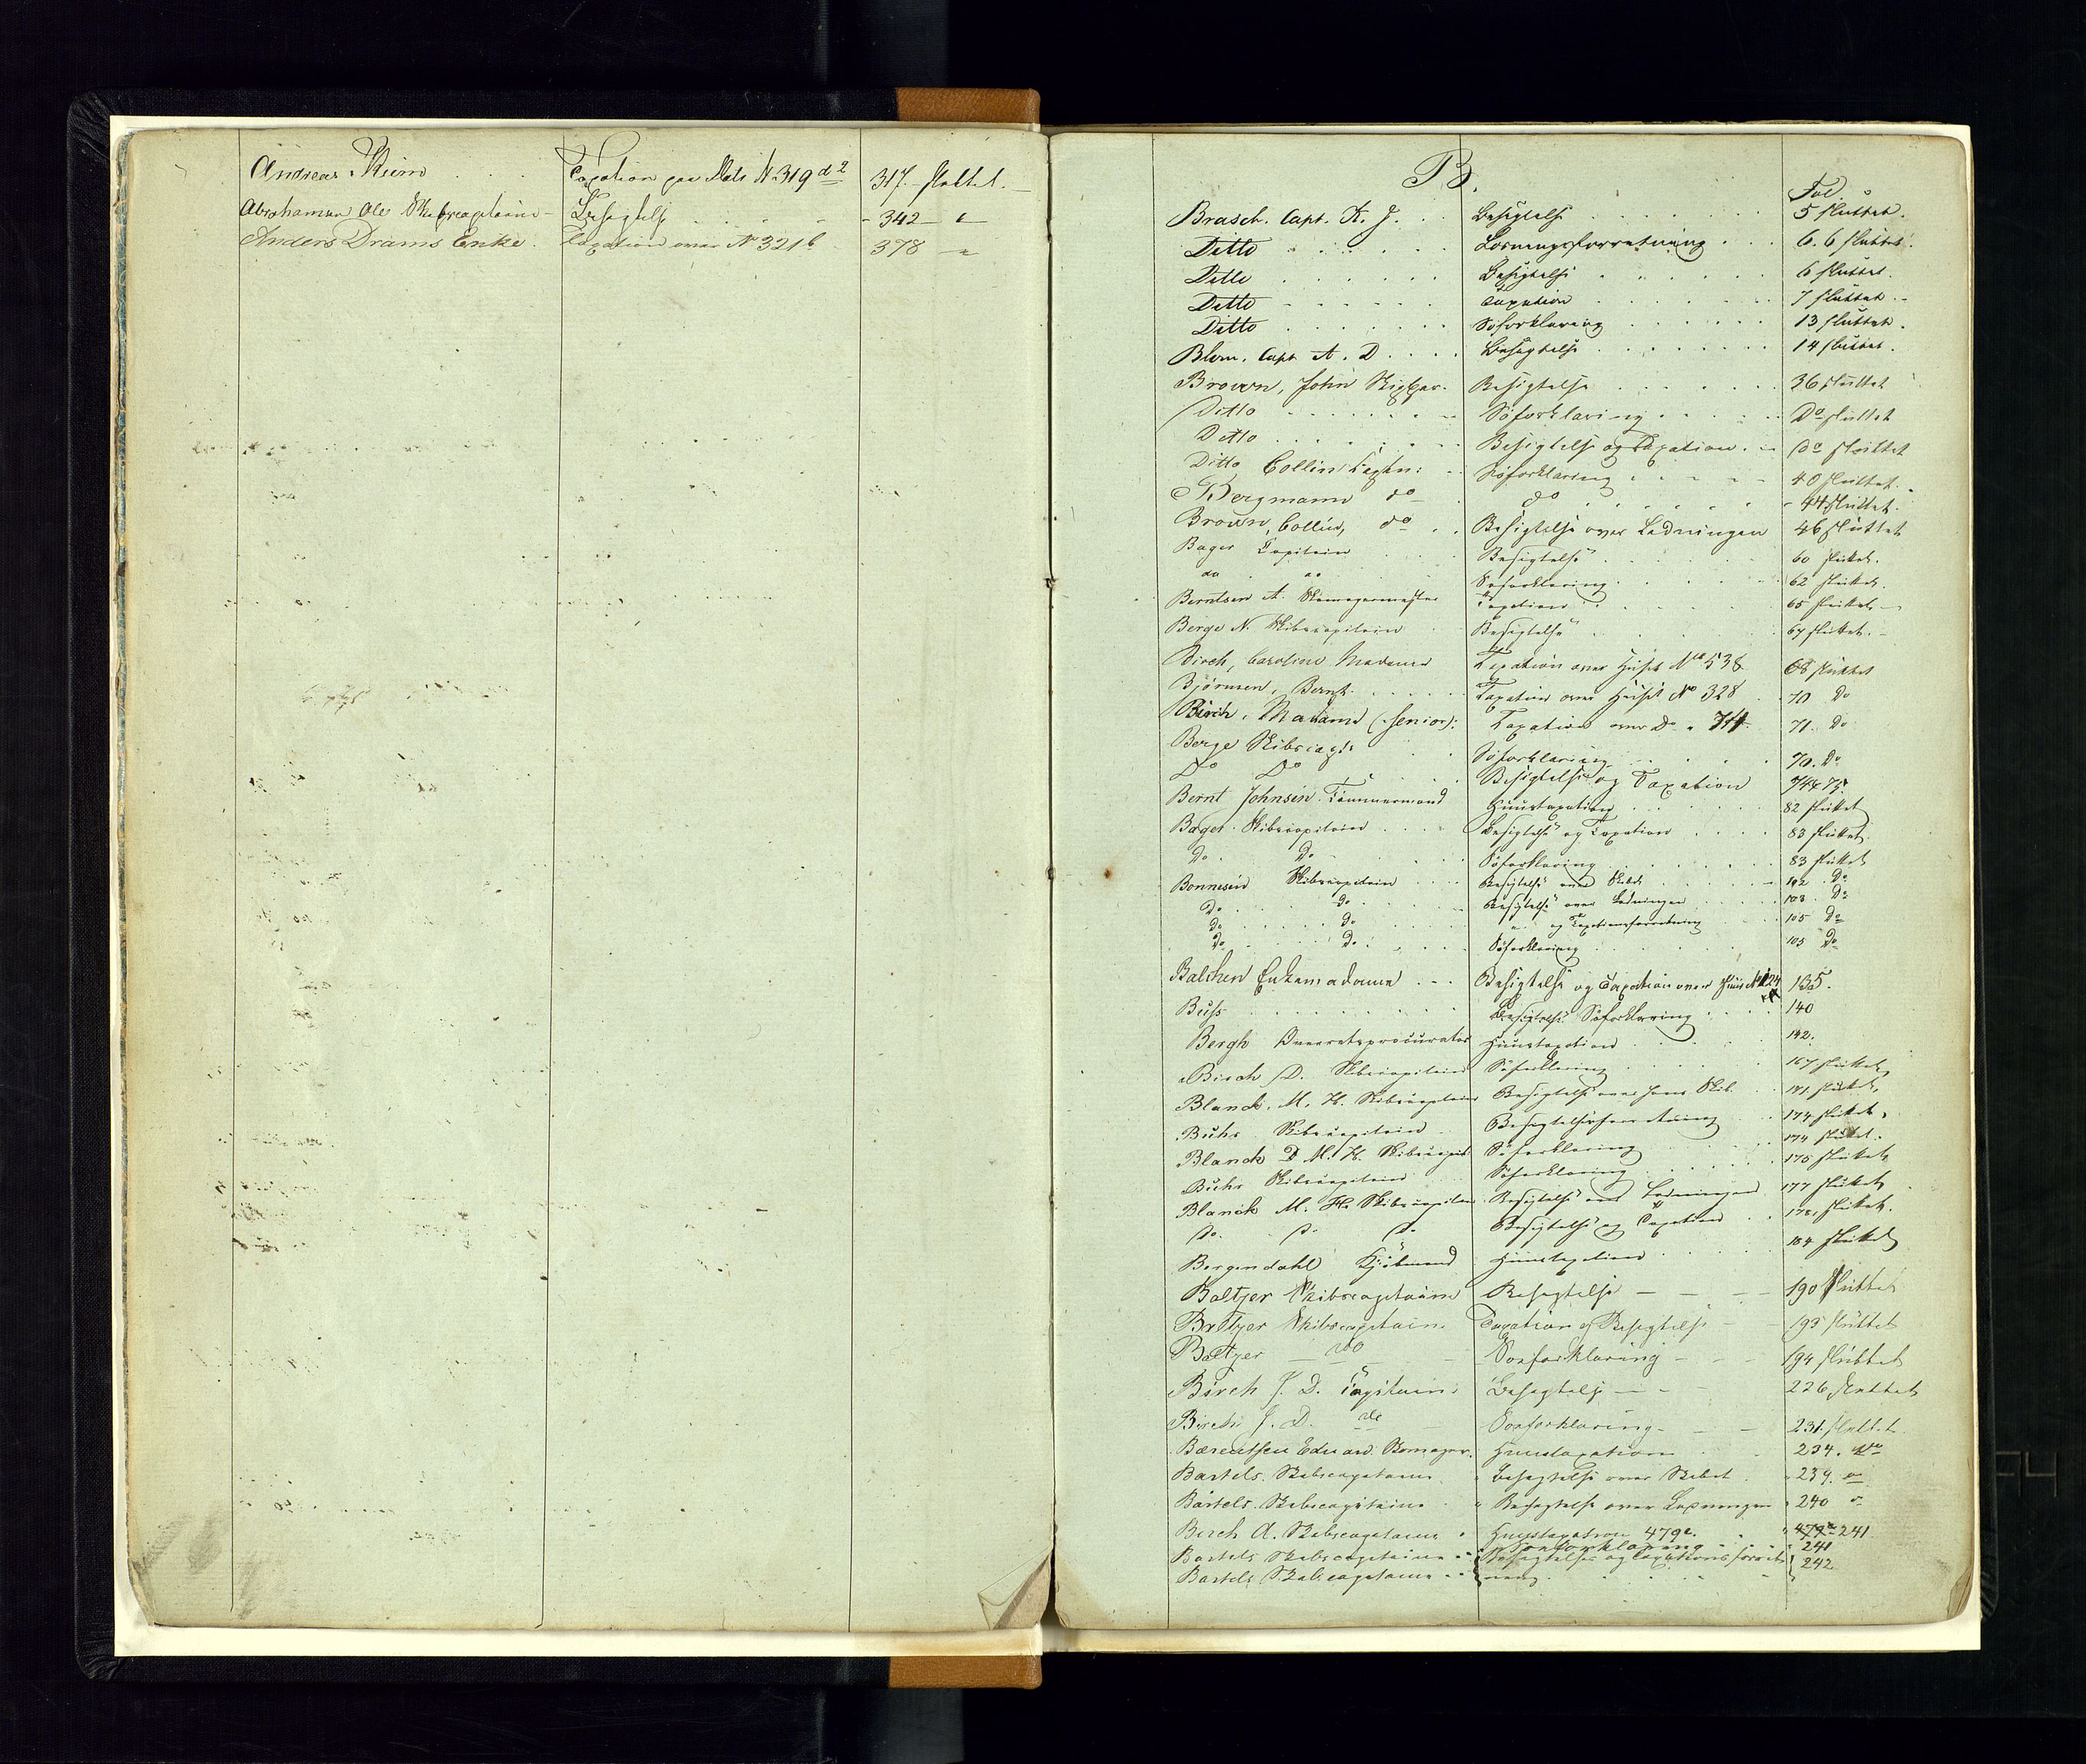 Andreas . . . Taxation paa Matr N 319 d 2 317 sluttet.
Abrahamsen Ole Skibscapitain Besigtelse 342 "
Anders Drams Enke. Taxation over No 321 b 378 "
B.
Fol.
Brasch. Capt. K. J. . . Besigtelse 5 sluttet.
Ditto Losningsforretning 6. 6 sluttet.
Ditto Besigtelse 6 sluttet.
Ditto Taxation 7 sluttet.
Ditto Søforklaring 13 sluttet.
Blom. Capt. A. D. . . . Besigtelse 14 sluttet.
Brown, John Skipper. Besigtelse 36 sluttet
Ditto Søforklaring Do sluttet
Ditto Besigtelse og Taxation. Do sluttet
Ditto Collin Captn: Søforklaring 40 sluttet.
Bergmann do do 44 sluttet.
Brown, Collin, do Besigtelse over Ladningen 46 sluttet
Bager Capitain Besigtelse 60 sluttet.
do do Søforklaring 62 sluttet.
Berntsen A. Skomagermester Taxation 65 sluttet
Berge N. Skibscapitain Besigtelse 67 sluttet.
Birch, Caroline Madame Taxation over Huset No 538 68 sluttet
Bjørnsen, Bernt Taxation over Huset No 328 70 Do
Birch, Madame (senior): Taxation over Do 71. Do
Berge Skibscapt Søforklaring 70. Do
Do Do Besigtelse og Taxation 74 & 75
Bernt Johnsen Tømmermand Huustaxation 82 sluttet
Bager Skibscapitain Besigtelse og Taxation 83 sluttet
Do. Do Søforklaring 83 sluttet
Bonnesen Skibscapitain Besigtelse over Skibet 102 Do
Do do Besigtelse over Ladningen 103. Do
Do do " og Taxationsforretning 105 Do
Do Do Søforklaring 105 Do
Balchen Enkemadame Besigtelse og Taxation over Huus No 124 135.
Buhs Besigtelse Søforklaring 140
Bergh Overretsprocurator Huustaxation 142.
Birch D. Skibscapitain Søforklaring 167 sluttet
Blanck. M. H. Skibscapitain Besigtelse over hans Skib 171 sluttet,
Buhs Skibscapitain Besigtelsesforretning 174 sluttet.
Blanck D M. H. Skibscapt Søforklaring 174 sluttet.
Buhs Skibscapitain Søforklaring 175 sluttet
Blanck M. H. Skibscapitain Besigtelse over Ladningen 177 sluttet
Do. Do Do Besigtelse og Taxation 178. sluttet.
Bergendahl Kjøbmand Huustaxation 184 sluttet
Baltzer Skibscapitain Besigtelse 190 sluttet
Baltzer Skibscapitain Taxation og Besigtelse 193 sluttet
Baltzer do Søeforklaring 194 sluttet
Birch J. D. Capitain Besigtelse 226 sluttet
Birch J. D. do Søeforklaring 231. sluttet
Bærentsen Eduard. Huustaxation 234. do
Bartels. Skibscapitain Besigtelse over Skibet 239. do
Bartels. Skibscapitain " Besigtelse over Ladningen 240 do
Birch A. Skibscapitain Huustaxation 479 e. 479 e 241
Bartels Skibscapitain " Søeforklaring 241
Bartels Skibscapitain Besigtelses og Taxationsforret- 242
ning